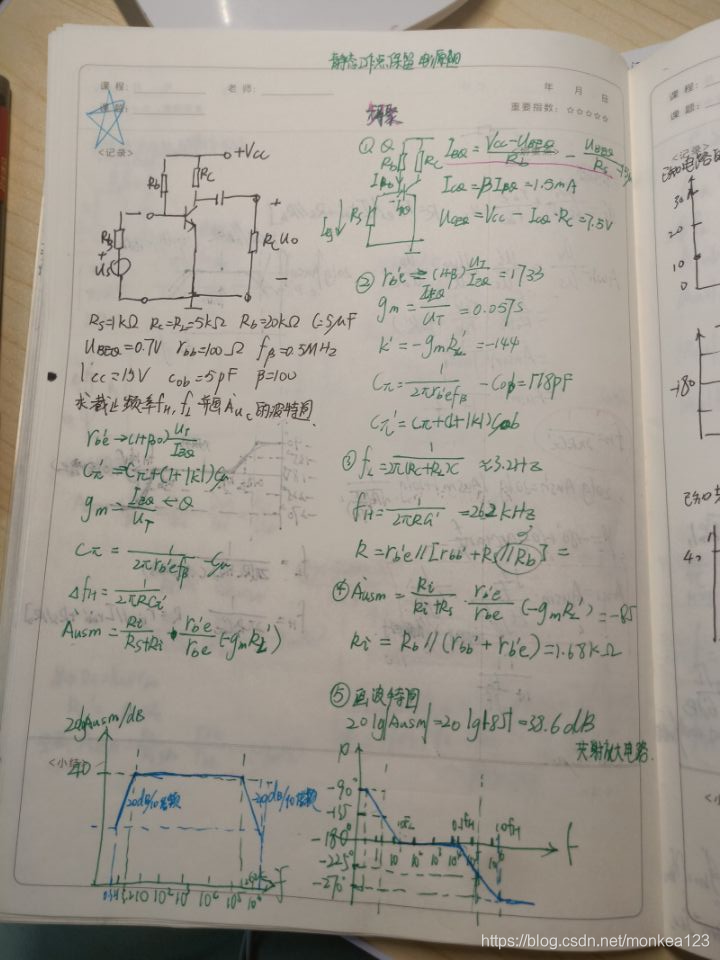 静态工作点保留电源
课程:
老师:
年 月 日
重要指数: ☆☆☆☆☆
<记录>
+Vcc
Rb
Rc
Rs
Us
+
Uo
-
Rs=1kΩ Rc=RL=5kΩ Rb=20kΩ C=5μF
UBEQ=0.7V rbb'=100Ω fβ=0.5MHz
Vcc=15V Cob=5pF β=100
求截止频率fH,fL 并画Aus的波特图
rb'e → (1+β0) UT/IEQ
Cπ' = Cπ+(1+|K|)Cμ
gm = IEQ/UT ← Q
Cπ = 1/(2πrb'efβ) - Cμ
fH = 1/(2πRCπ')
Ausm = Ri/(Rs+Ri) · rb'e/rbe (-gmRL')
频率
① Q
Rb
Rc
Rs
IBQ = (Vcc-UBEQ)/Rb - UBEQ/Rs
ICQ = βIBQ = 1.5mA
UBEQ = Vcc - ICQ·Rc = 7.5V
② rb'e = (1+β) UT/IEQ = 1733
gm = IEQ/UT = 0.057s
K' = -gmRL' = -144
Cπ = 1/(2πrb'efβ) - Cob = 178pF
Cπ' = Cπ+(1+|K|)Cob
③ fL = 1/(2π(Rc+RL)C) ≈ 3.2Hz
fH = 1/(2πRC') = 262kHz
R = rb'e//[rbb'+Rs//Rb] =
④ Ausm = Ri/(Ri+Rs) · rb'e/rbe (-gmRL') = -85
Ri = Rb//(rbb'+rb'e) = 1.68kΩ
⑤ 画波特图
20lg|Ausm| = 20lg|-85| = 38.6dB
共射放大电路.
20lgAusm/dB
40
20dB/10倍频
-20dB/10倍频
f
φ
-90°
-135
-180°
-225°
-270°
f
https://blog.csdn.net/monkea123